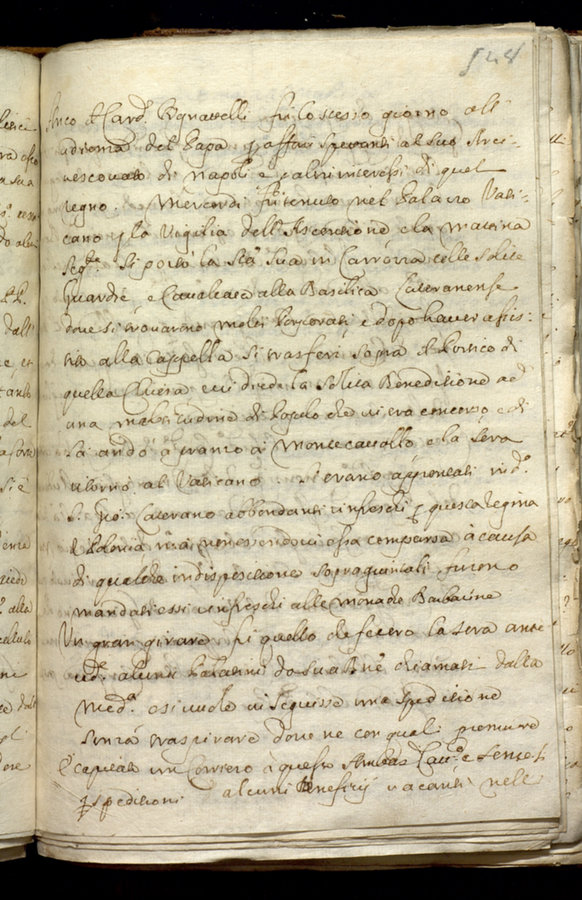 524
Anco il Card. Pignatelli fù lo stesso giorno all'
udienza del Papa p affari spettanti al suo Arci:
vescovato di Napoli e p altri interessi di quel
regno. Mercordi fù tenuto nel Palazzo Vati:
cano p la Vigilia dell'Ascensione e la mattina
Seg.te si portò la Stà Sua in Carrozza colle solite
guardie e Cavalcata alla Basilica Lateranense
dove si trovarono molti Porporati e dopo haver assis:
tito alla Cappella si trasferì sopra il Portico di
quella Chiesa e vi diede la solita Benedizione ad
una moltitudine di Popolo che vi era concorso e di
là andò a pranzo a Montecavallo e la sera
ritornò al Vaticano. Si erano apprestati in d.o
Laterano abbondanti rinfreschi p questa Regina
di Polonia mà non essendovi essa comparsa à causa
di qualche indisposizione sopragiuntali, furono
mandati essi rinfreschi alle Monache Barbarine
Un gran girare fù quello che fecero la sera ante
ced.e alcuni Palatini do Sua Bne chiamati dalla
Med.a e si vuole vi seguisse una speditione
senza traspirare dove ne con quali premure
È capitato un Corriero a questo Ambas Catt.o e sente si
p spedizioni alcuni Benefizij vacanti nell